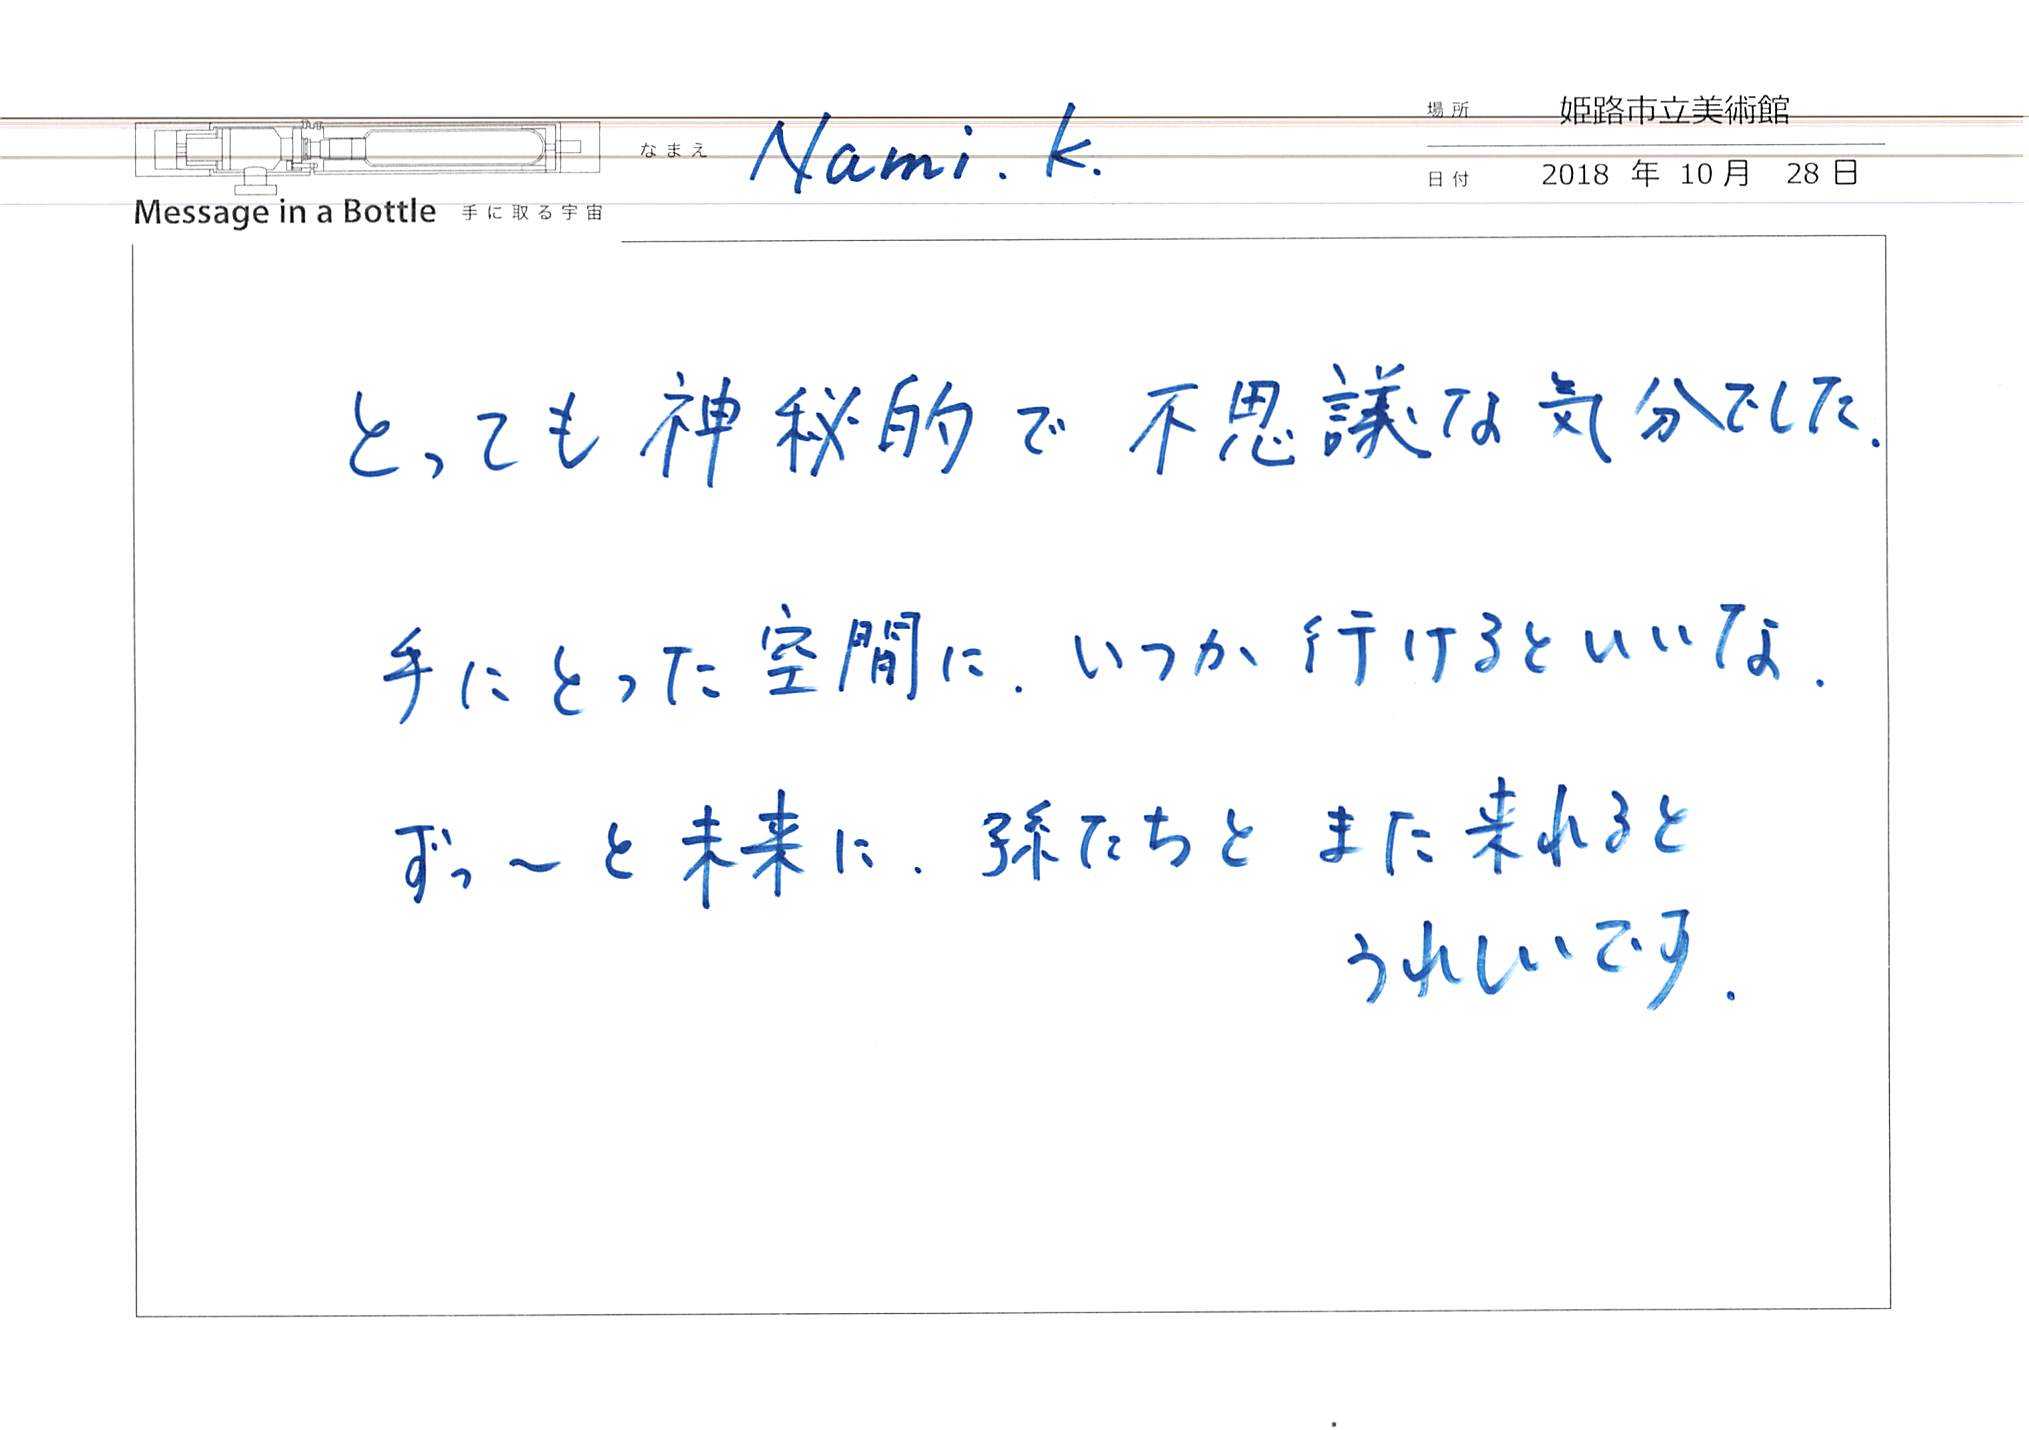 場所 姫路市立美術館
なまえ Nami. K.
日付 2018 年 10 月 28 日
Message in a Bottle 手に取る宇宙
とっても神秘的で不思議な気分でした.
手にとった空間に. いつか行けるといいな.
ずっ〜と未来に. 孫たちとまた来れると
うれしいです.